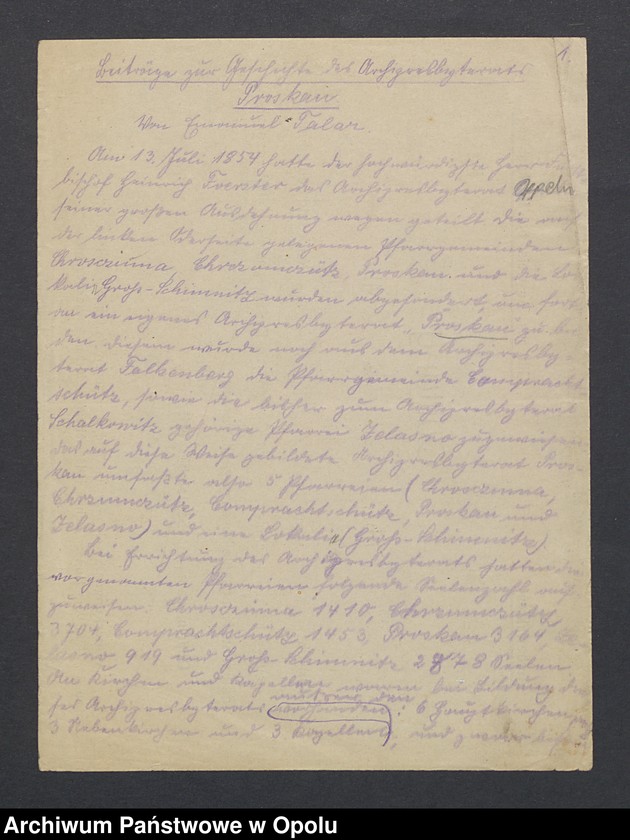 1.
Beiträge zur Geschichte des Archipresbyterats
Proskau
Von Emanuel Talar.
Am 13. Juli 1854 hatte der hochwürdigste Herr
bischof Heinrich Foerster das Archipresbyterat Oppeln
seiner großen Ausdehnung wegen geteilt die auf
der linken Oderseite gelegenen Pfarrgemeinden
Chrosczinna, Chrzumczütz, Proskau und die Lo-
kalie Groß-Schimnitz wurden abgesondert, um fort-
an ein eigenes Archipresbyterat „Proskau zu bil-
den, diesem wurde noch aus dem Archipresby-
terat Falkenberg die Pfarrgemeinde Compracht-
schütz, sowie die bisher zum Archipresbyterat
Schalkowitz gehörige Pfarrei Zelasno zugewiesen
das auf diese Weise gebildete Archipresbyterat Pros-
kau umfaßte also 5 Pfarreien (Chrosczinna,
Chrzumczütz, Comprachtschütz, Proskau und
Zelasno) und eine Lokalie (Groß-Schimnitz)
Bei Errichtung des Archipresbyterats hatten die
vorgenannten Pfarreien folgende Seelenzahl auf-
zuweisen: Chrosczinna 1410, Chrzumczütz
3704, Comprachtschütz 1453, Proskau 3164 Ze-
lasno 919 und Groß-Schimnitz 2878 Seelen
An Kirchen und Kapellen waren bei Bildung die-
ses Archipresbyterats vorhanden: 6 Hauptkirchen,
3 Nebenkirchen und 3 Kapellen, und zwar
Archiwum Państwowe w Opolu